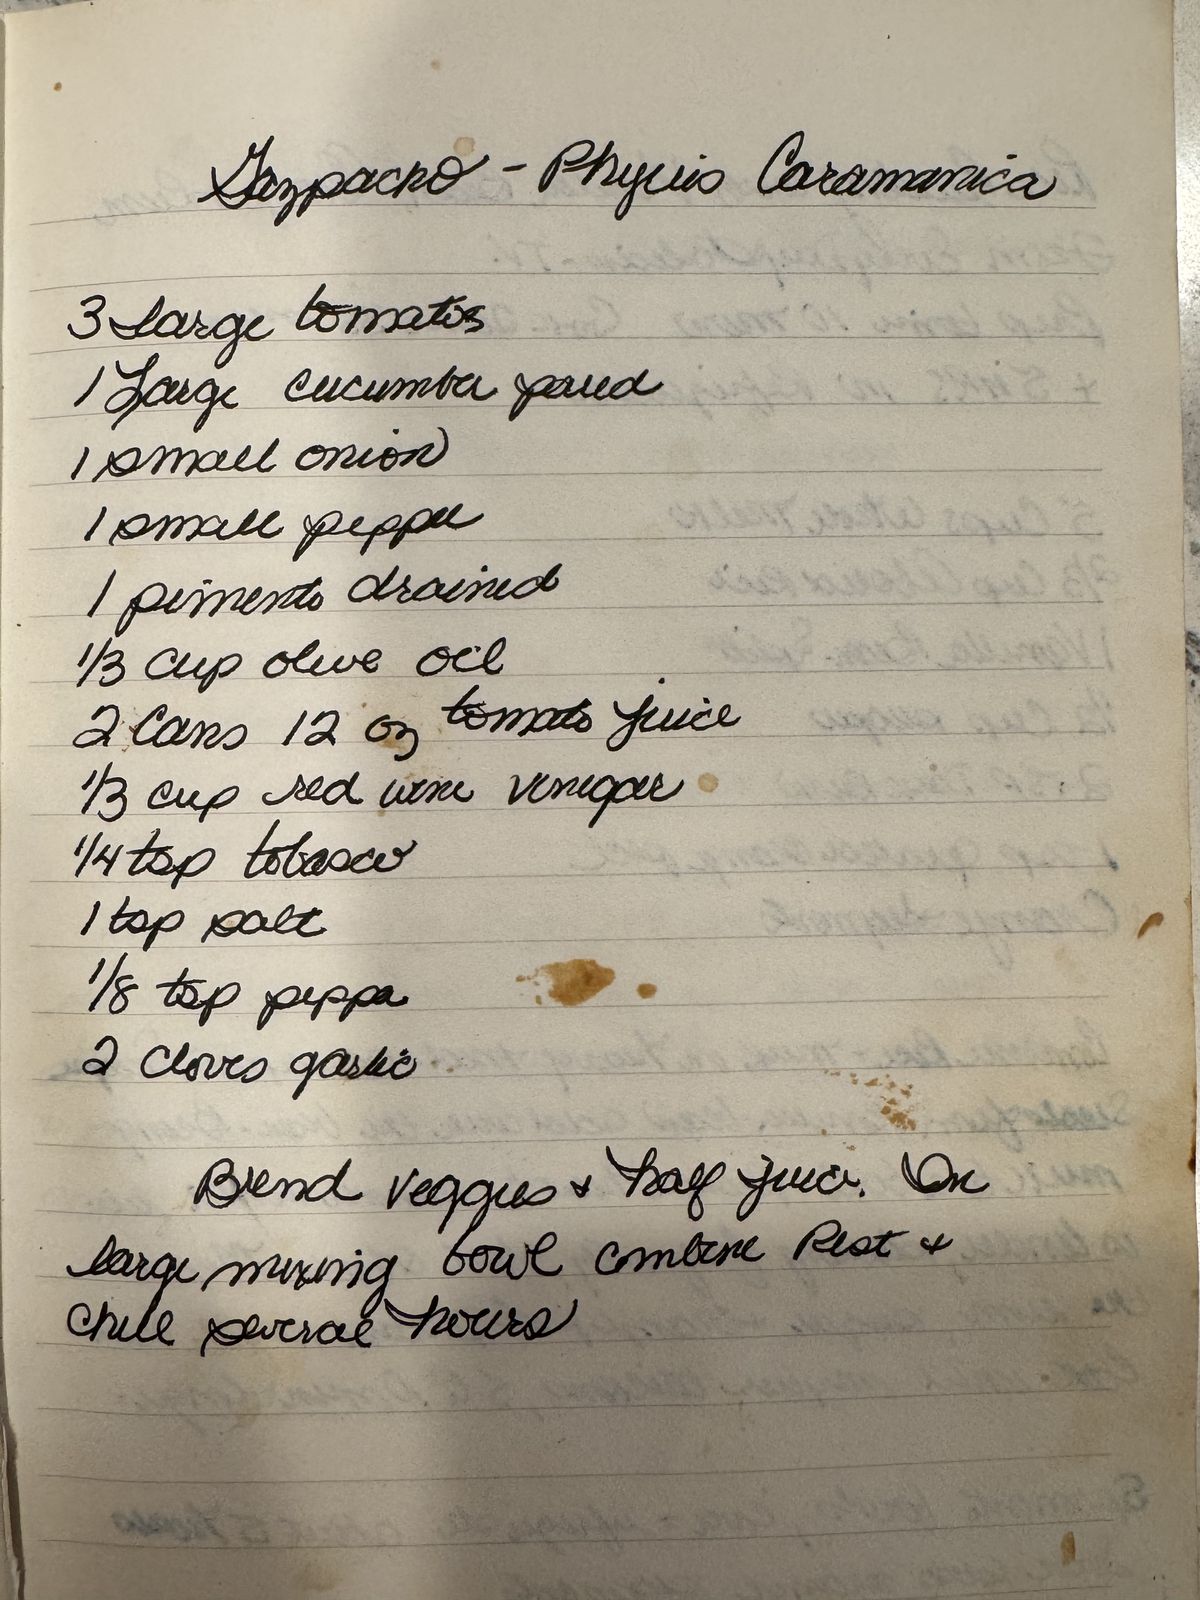 Gazpacho - Phyllis Caramanica
3 Large tomatos
1 Large cucumber pared
1 small onion
1 small pepper
1 pimento drained
1/3 cup olive oil
2 Cans 12 oz tomato juice
1/3 cup red wine vinegar
1/4 tsp tobasco
1 tsp salt
1/8 tsp pepper
2 Cloves garlic
Blend veggies + half juice. In
large mixing bowl combine Rest +
Chill several hours